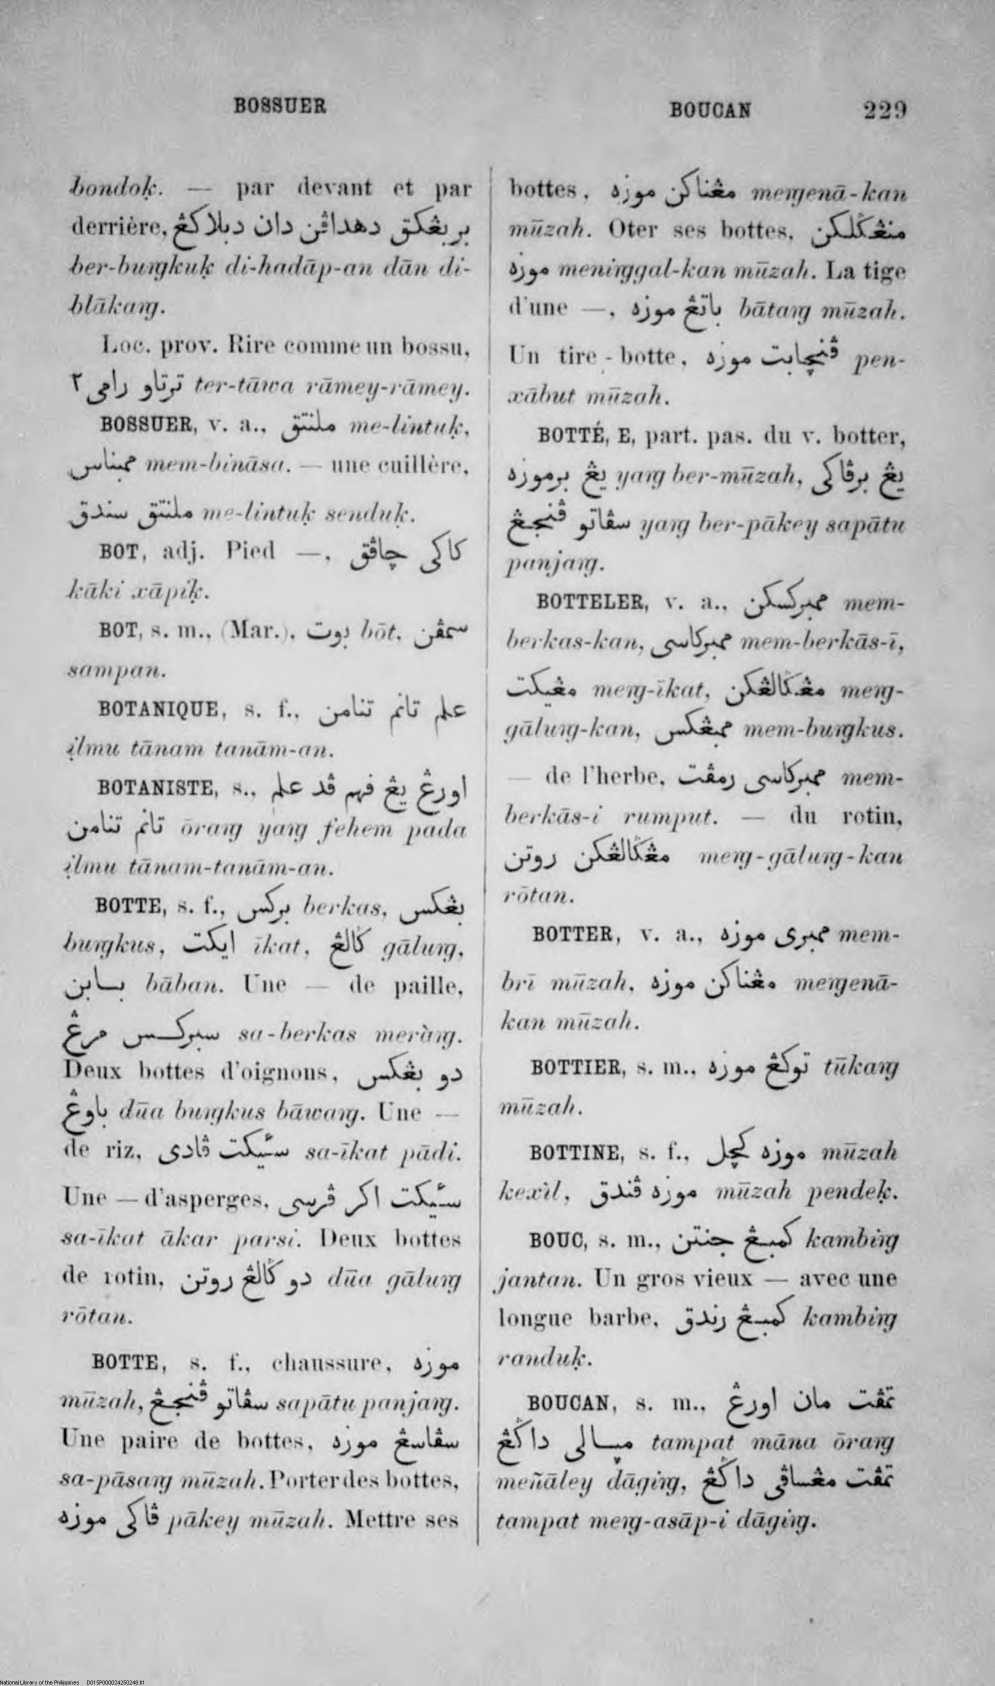 BOSSUER
BOUCAN 229
bondoḳ. — par devant et par
derrière, بربڠكق دهداڤن دان دبلاكڠ
ber-buŋkuḳ di-hadāp-an dān di-
blākaŋ.
Loc. prov. Rire comme un bossu,
ترتاو رامي ٢ ter-tāwa rāmey-rāmey.
BOSSUER, v. a., ملنتق me-lintuḳ,
ممبناس mem-bināsa. — une cuillère,
ملنتق سندق me-lintuḳ senduḳ.
BOT, adj. Pied —, كاكي چاڤق
kāki xāpiḳ.
BOT, s. m., (Mar.), بوت bōt, سمڤن
sampan.
BOTANIQUE, s. f., علم تانم تنامن
ịlmu tānam tanām-an.
BOTANISTE, s., اورڠ يڠ فهم ڤد علم
تانم تنامن ōraŋ yaŋ fehem pada
ịlmu tānam-tanām-an.
BOTTE, s. f., بركس berkas, بڠكس
buŋkus, ايكت īkat, ڬالڠ gāluŋ,
بابن bāban. Une — de paille,
سبركس مرڠ sa-berkas meràŋ.
Deux bottes d'oignons, دو بڠكس
باوڠ dūa buŋkus bāwaŋ. Une —
de riz, سئيكت ڤادي sa-īkat pādi.
Une — d'asperges, سئيكت اكر ڤرسي
sa-īkat ākar parsi. Deux bottes
de rotin, دو ڬالڠ روتن dūa gāluŋ
rōtan.
BOTTE, s. f., chaussure, موزه
mūzah, سڤاتو ڤنجڠ sapātu panjaŋ.
Une paire de bottes, سڤاسڠ موزه
sa-pāsaŋ mūzah. Porter des bottes,
ڤاكي موزه pākey mūzah. Mettre ses
bottes, مڠناكن موزه meŋenā-kan
mūzah. Oter ses bottes, منڠڬلكن
موزه meniŋgal-kan mūzah. La tige
d'une —, باتڠ موزه bātaŋ mūzah.
Un tire-botte, ڤنچابت موزه pen-
xābut mūzah.
BOTTÉ, E, part. pas. du v. botter,
يڠ برموزه yaŋ ber-mūzah, يڠ برڤاكي
سڤاتو ڤنجڠ yaŋ ber-pākey sapātu
panjaŋ.
BOTTELER, v. a., ممبركسكن mem-
berkas-kan, ممبركاسي mem-berkās-ī,
مڠيكت meŋ-īkat, مڠڬالڠكن meŋ-
gāluŋ-kan, ممبڠكس mem-buŋkus.
— de l'herbe, ممبركاسي رمڤت mem-
berkās-i rumput. — du rotin,
مڠڬالڠكن روتن meŋ-gāluŋ-kan
rōtan.
BOTTER, v. a., ممبري موزه mem-
brī mūzah, مڠناكن موزه meŋenā-
kan mūzah.
BOTTIER, s. m., توكڠ موزه tūkaŋ
mūzah.
BOTTINE, s. f., موزه كچل mūzah
kexìl, موزه ڤندق mūzah pendeḳ.
BOUC, s. m., كمبڠ جنتن kambiŋ
jantan. Un gros vieux — avec une
longue barbe, كمبڠ رندق kambiŋ
randuḳ.
BOUCAN, s. m., تمڤت مان اورڠ
داڬڠ tampat māna ōraŋ
meñāley dāgiŋ, تمڤت مڠساڤي داڬڠ
tampat meŋ-asāp-i dāgiŋ.
National Library of the Philippines